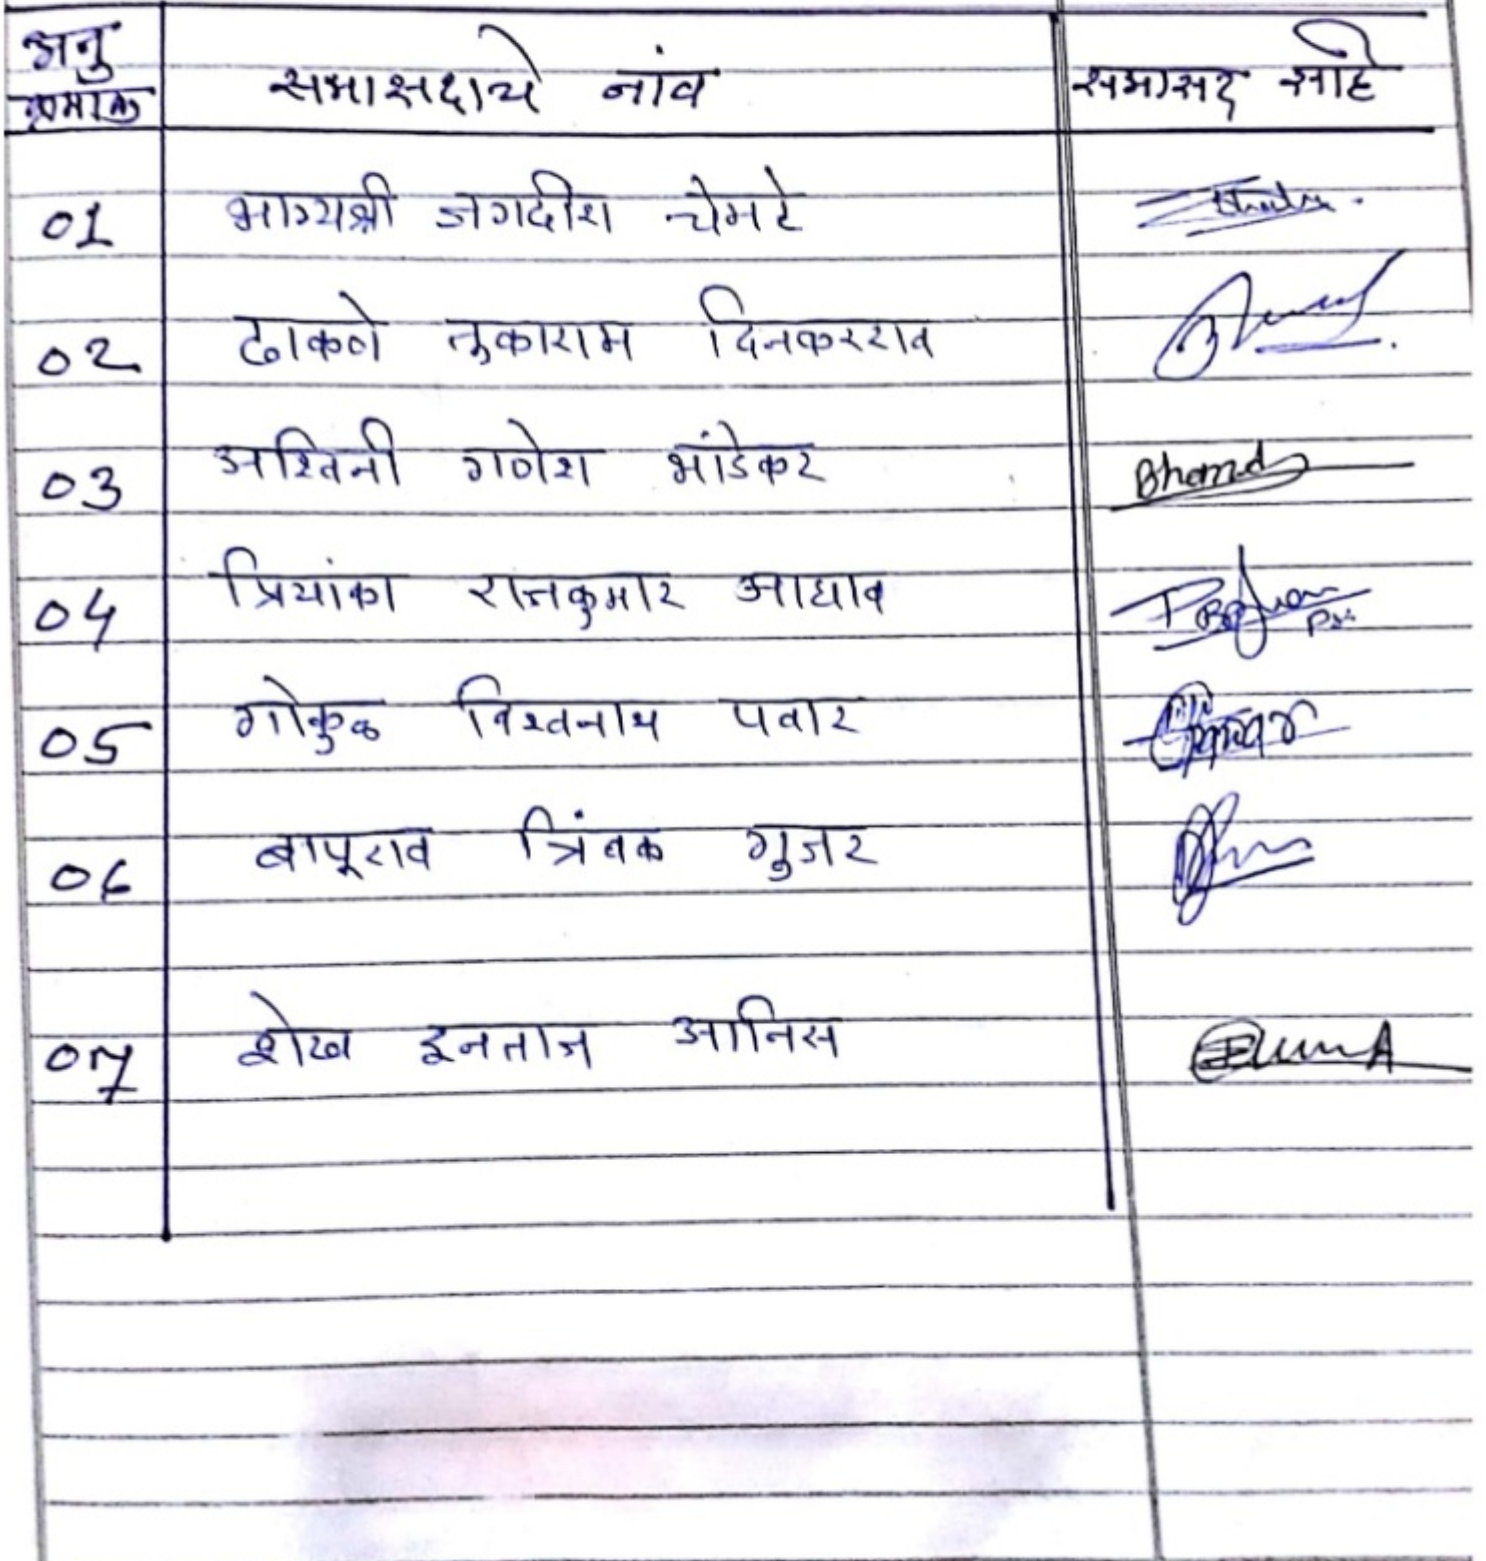 अनु क्रमांक सभासदाचे नांव सभासद सहि
01 भाग्यश्री जगदीश चेमटे
02 ढाकणे तुकाराम दिनकरराव
03 अश्विनी गणेश भांडेकर Bhand
04 प्रियांका राजकुमार आघाव
05 गोकुळ विश्वनाथ पवार
06 बापूराव त्रिंबक गुजर
07 शेख इनताज आनिस